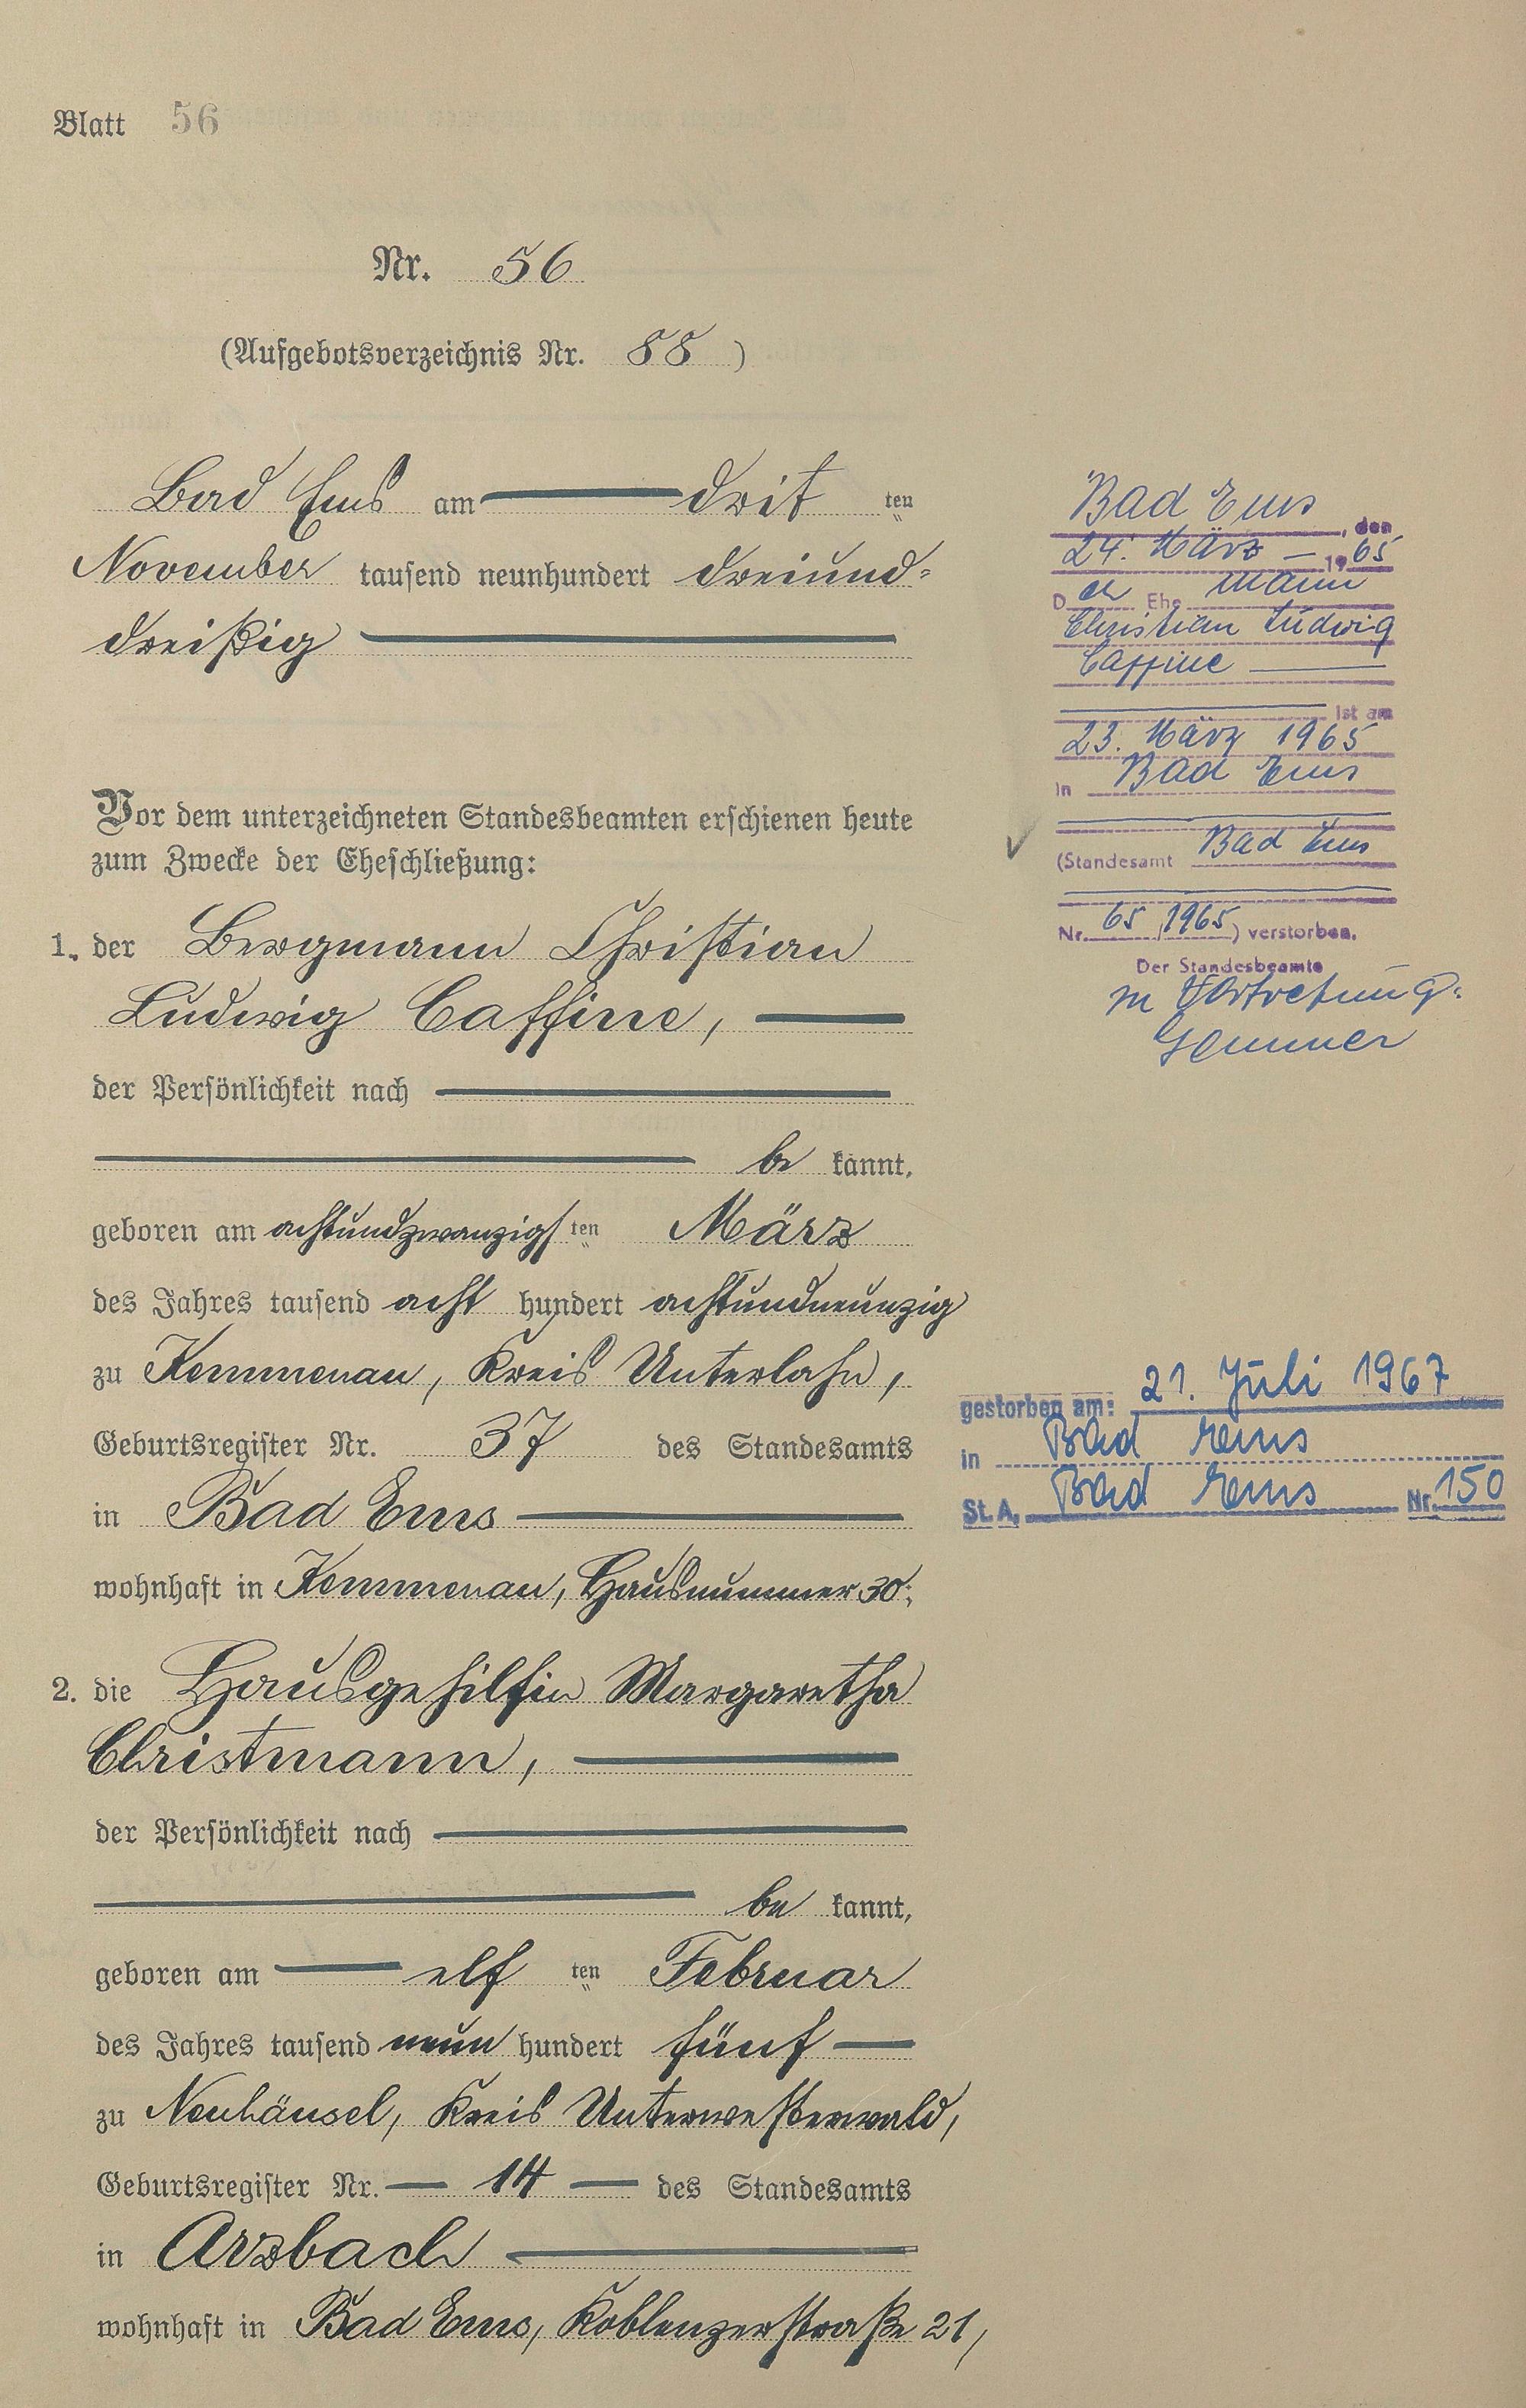 Blatt 56
Nr. 56
(Aufgebotsverzeichnis Nr. 88)
Bad Ems am drit ten
November tausend neunhundert dreiund=
dreißig
Vor dem unterzeichneten Standesbeamten erschienen heute
zum Zwecke der Eheschließung:
1. der Bergmann Christian
Ludwig Caffine,
der Persönlichkeit nach
be kannt,
geboren am achtundzwanzigs ten März
des Jahres tausend acht hundert achtundneunzig
zu Kemmenau, Kreis Unterlahn,
Geburtsregister Nr. 37 des Standesamts
in Bad Ems
wohnhaft in Kemmenau, Hausnummer 30;
2. die Hausgehilfin Margaretha
Christmann,
der Persönlichkeit nach
be kannt,
geboren am elf ten Februar
des Jahres tausend neun hundert fünf
zu Neuhäusel, Kreis Unterwesterwald,
Geburtsregister Nr. 14 des Standesamts
in Arzbach
wohnhaft in Bad Ems, Koblenzerstraße 21,
Bad Ems, den
24. März 1965
Der Ehemann
Christian Ludwig
Caffine
ist am
23. März 1965
in Bad Ems
(Standesamt Bad Ems
Nr. 65/1965) verstorben.
Der Standesbeamte
In Vertretung:
gestorben am: 21. Juli 1967
in Bad Ems
St. A. Bad Ems Nr. 150